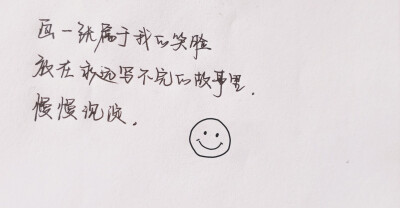 画一张属于我的笑脸
放在永远写不完的故事里.
慢慢沉淀.